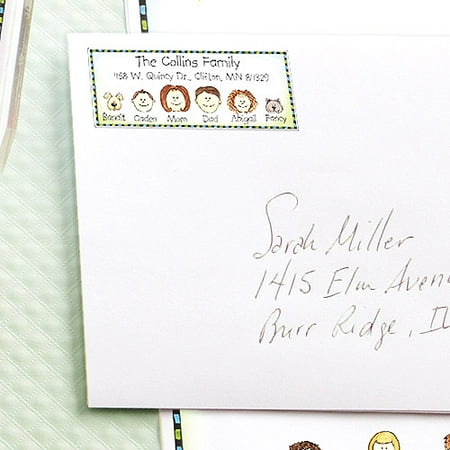 The Collins Family
458 W. Quincy Dr., Clifton, MN 81329
Bandit Caden Mom Dad Abigail Fancy
Sarah Miller
1415 Elm Aven
Burr Ridge, IL